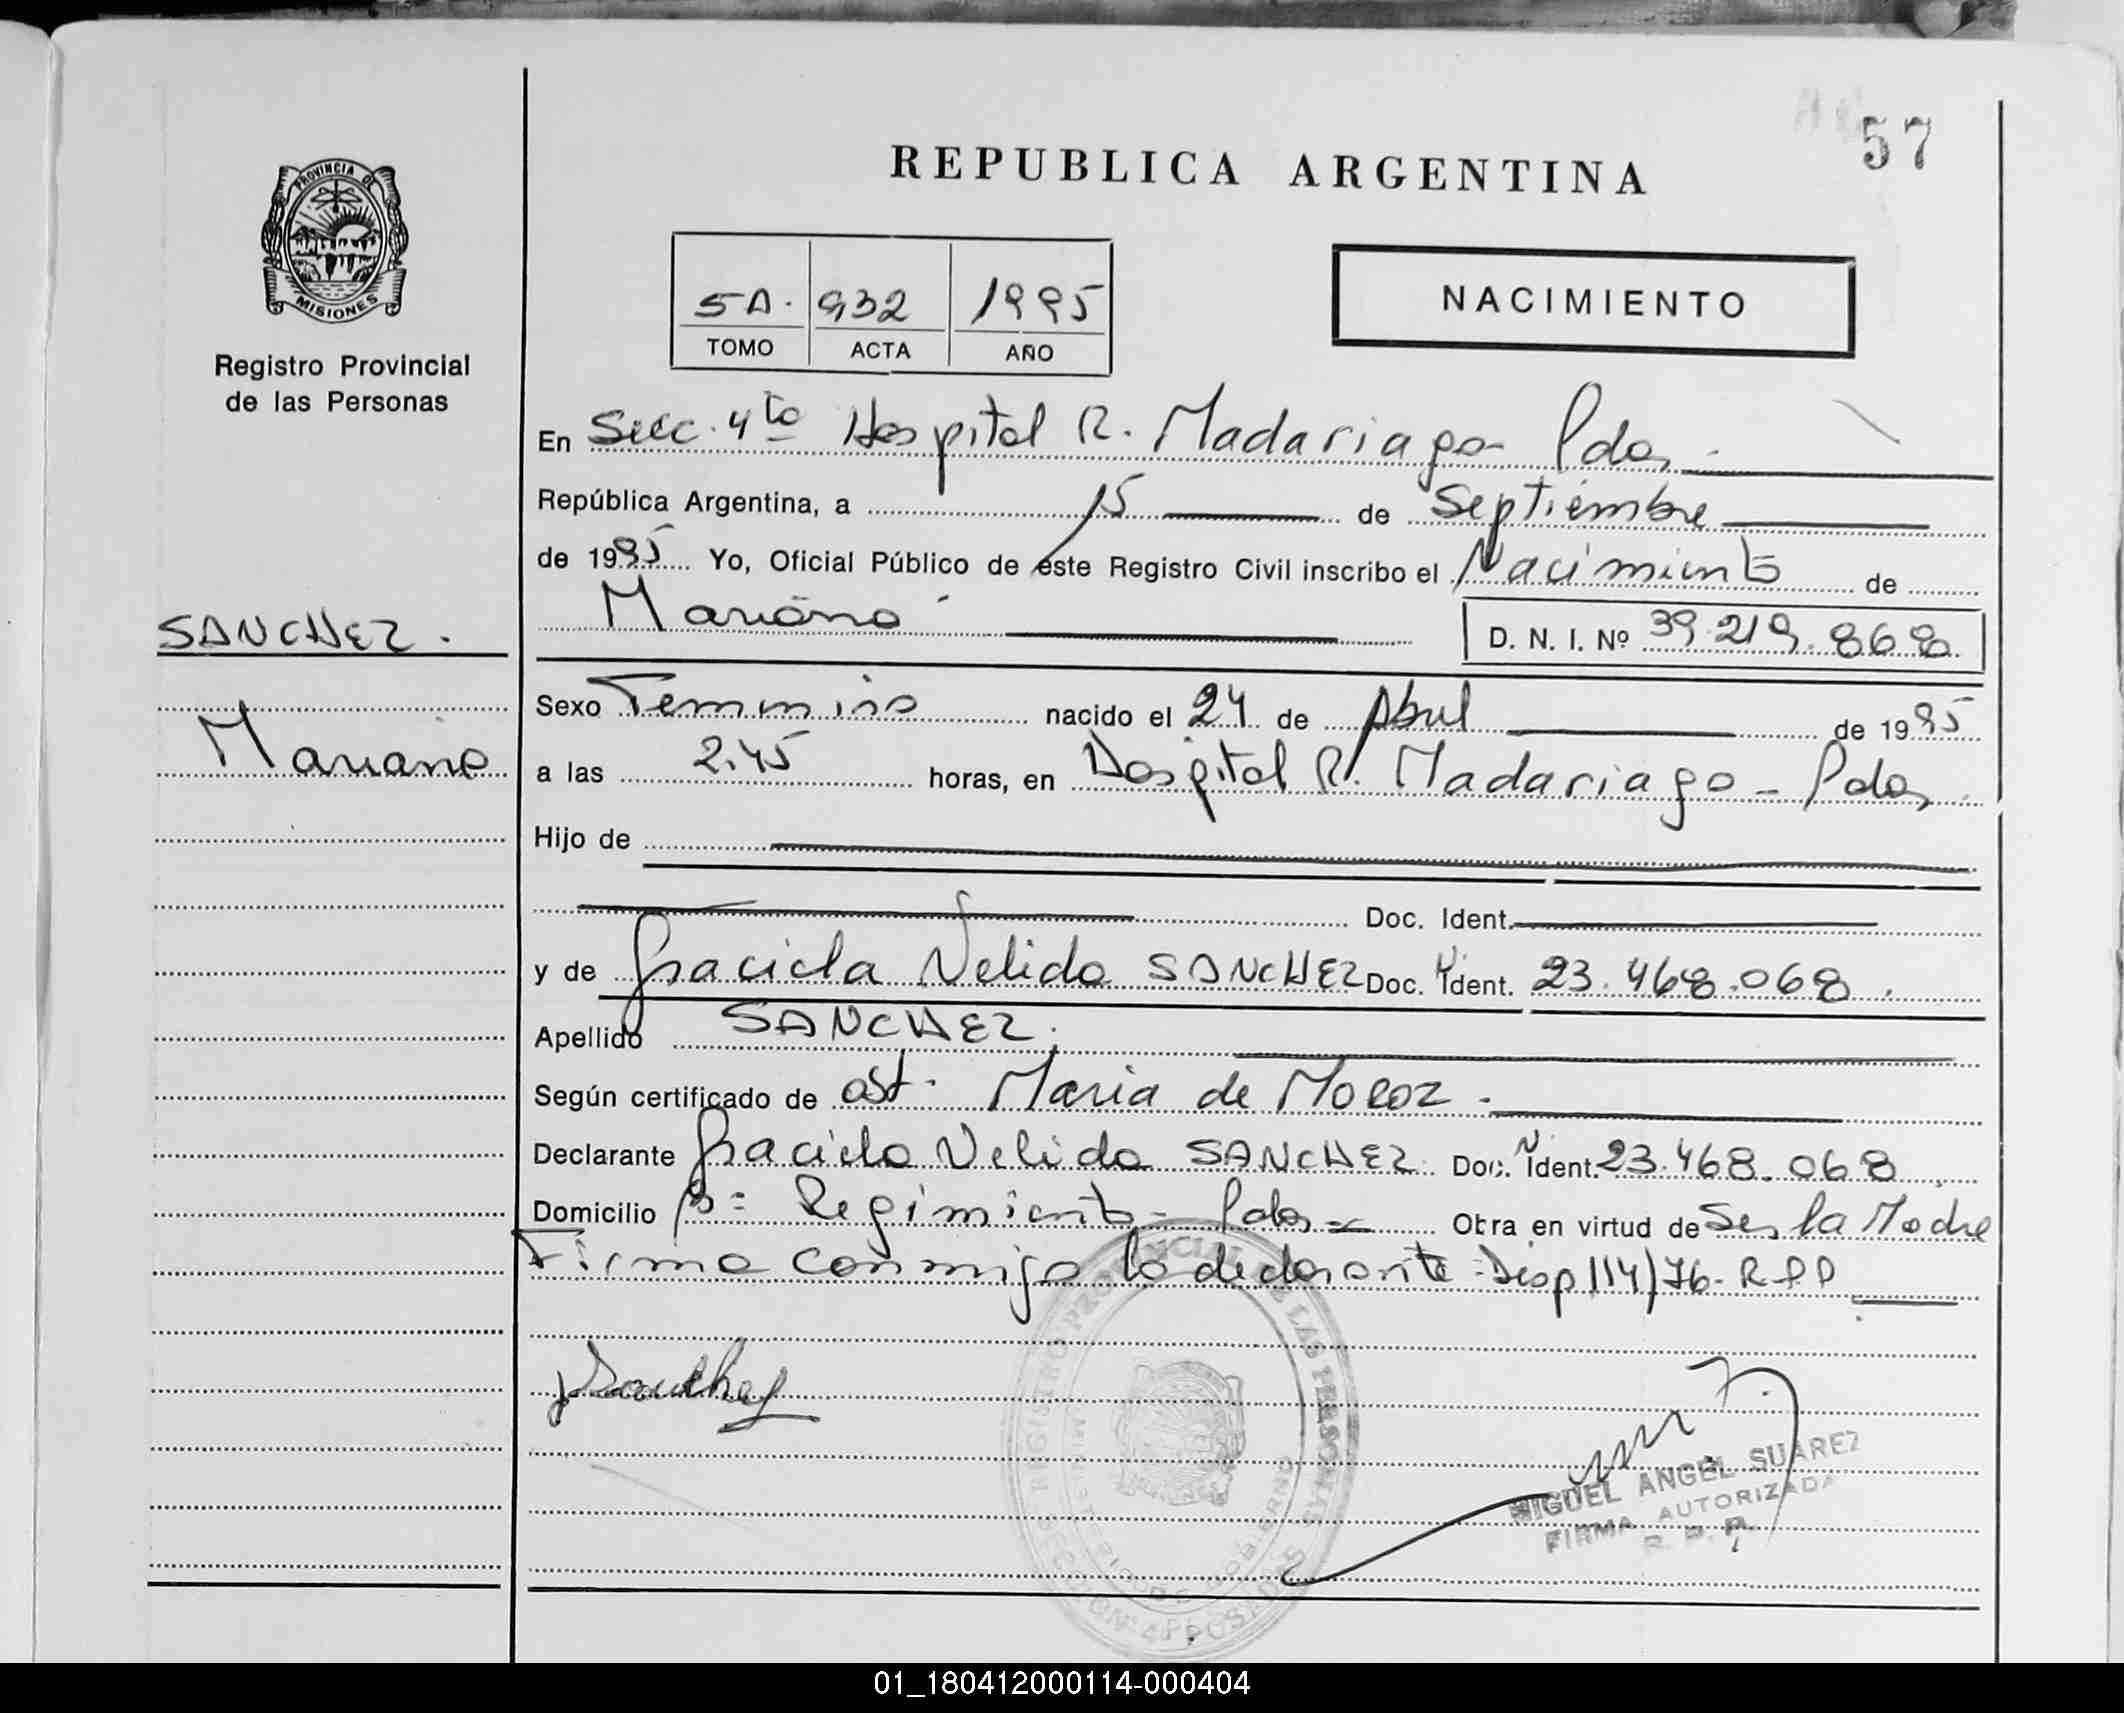 57
REPUBLICA ARGENTINA
PROVINCIA DE
MISIONES
Registro Provincial
de las Personas
5A. 932 1995
TOMO ACTA AÑO
NACIMIENTO
En Secc. 4ta Hospital R. Madariaga Pdas.
República Argentina, a 15 de Septiembre
de 1995 Yo, Oficial Público de este Registro Civil inscribo el Nacimiento de
Mariana D. N. I. Nº 39.219.868
SANCHEZ.
Mariana
Sexo Femenino nacido el 24 de Abril de 1995
a las 2.45 horas, en Hospital R. Madariaga - Pdas
Hijo de
Doc. Ident.
y de Graciela Nelida SANCHEZ Doc. Ident. 23.468.068.
Apellido SANCHEZ.
Según certificado de ost. Maria de Moroz.
Declarante Graciela Nelida SANCHEZ Doc. Ident. 23.468.068
Domicilio Bº Regimiento - Pdas Obra en virtud de Ser la Madre
Firma conmigo la declarante Disp 114/76- R.P.P
Sanchez
REGISTRO PROVINCIAL DE LAS PERSONAS
MINISTERIO DE GOBIERNO
POSADAS
MIGUEL ANGEL SUAREZ
FIRMA AUTORIZADA
R. P. P.
01_180412000114-000404